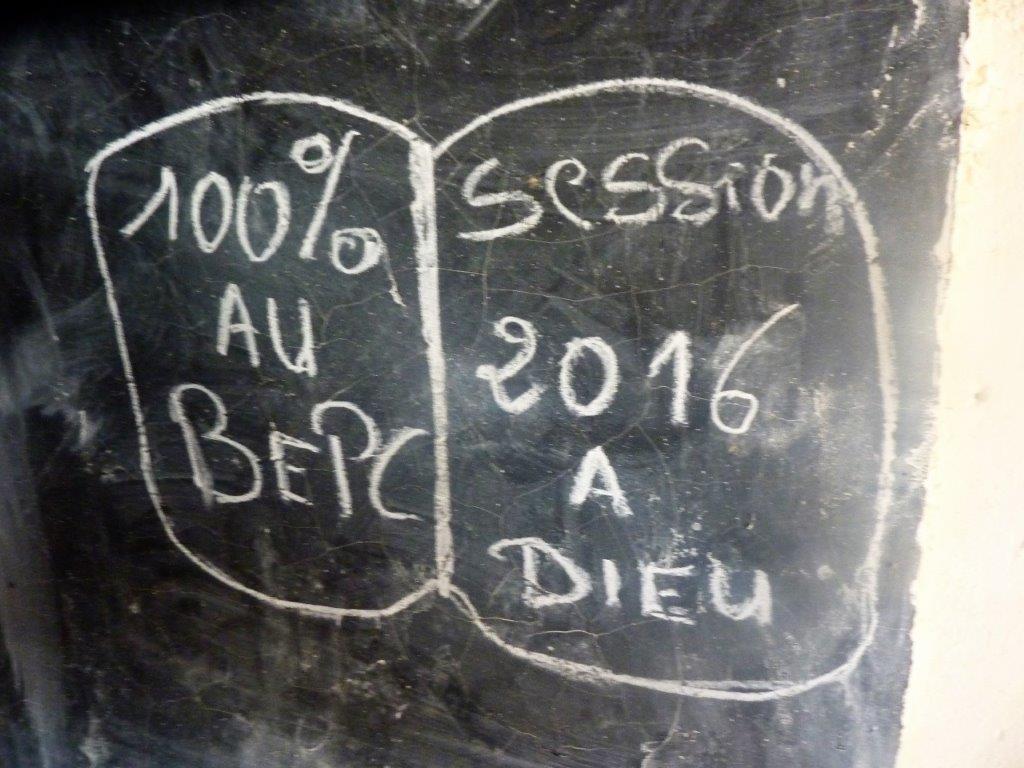 100%
AU
BEPC
Session
2016
A
DIEU